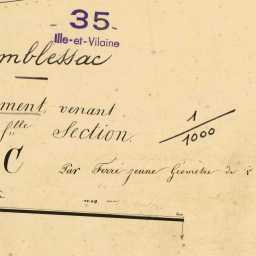 - 35 -
Ille-et-Vilaine
mblessac
ment, venant
flle Section.
1/1000
C
Par Ferré jeune Géomètre de 1